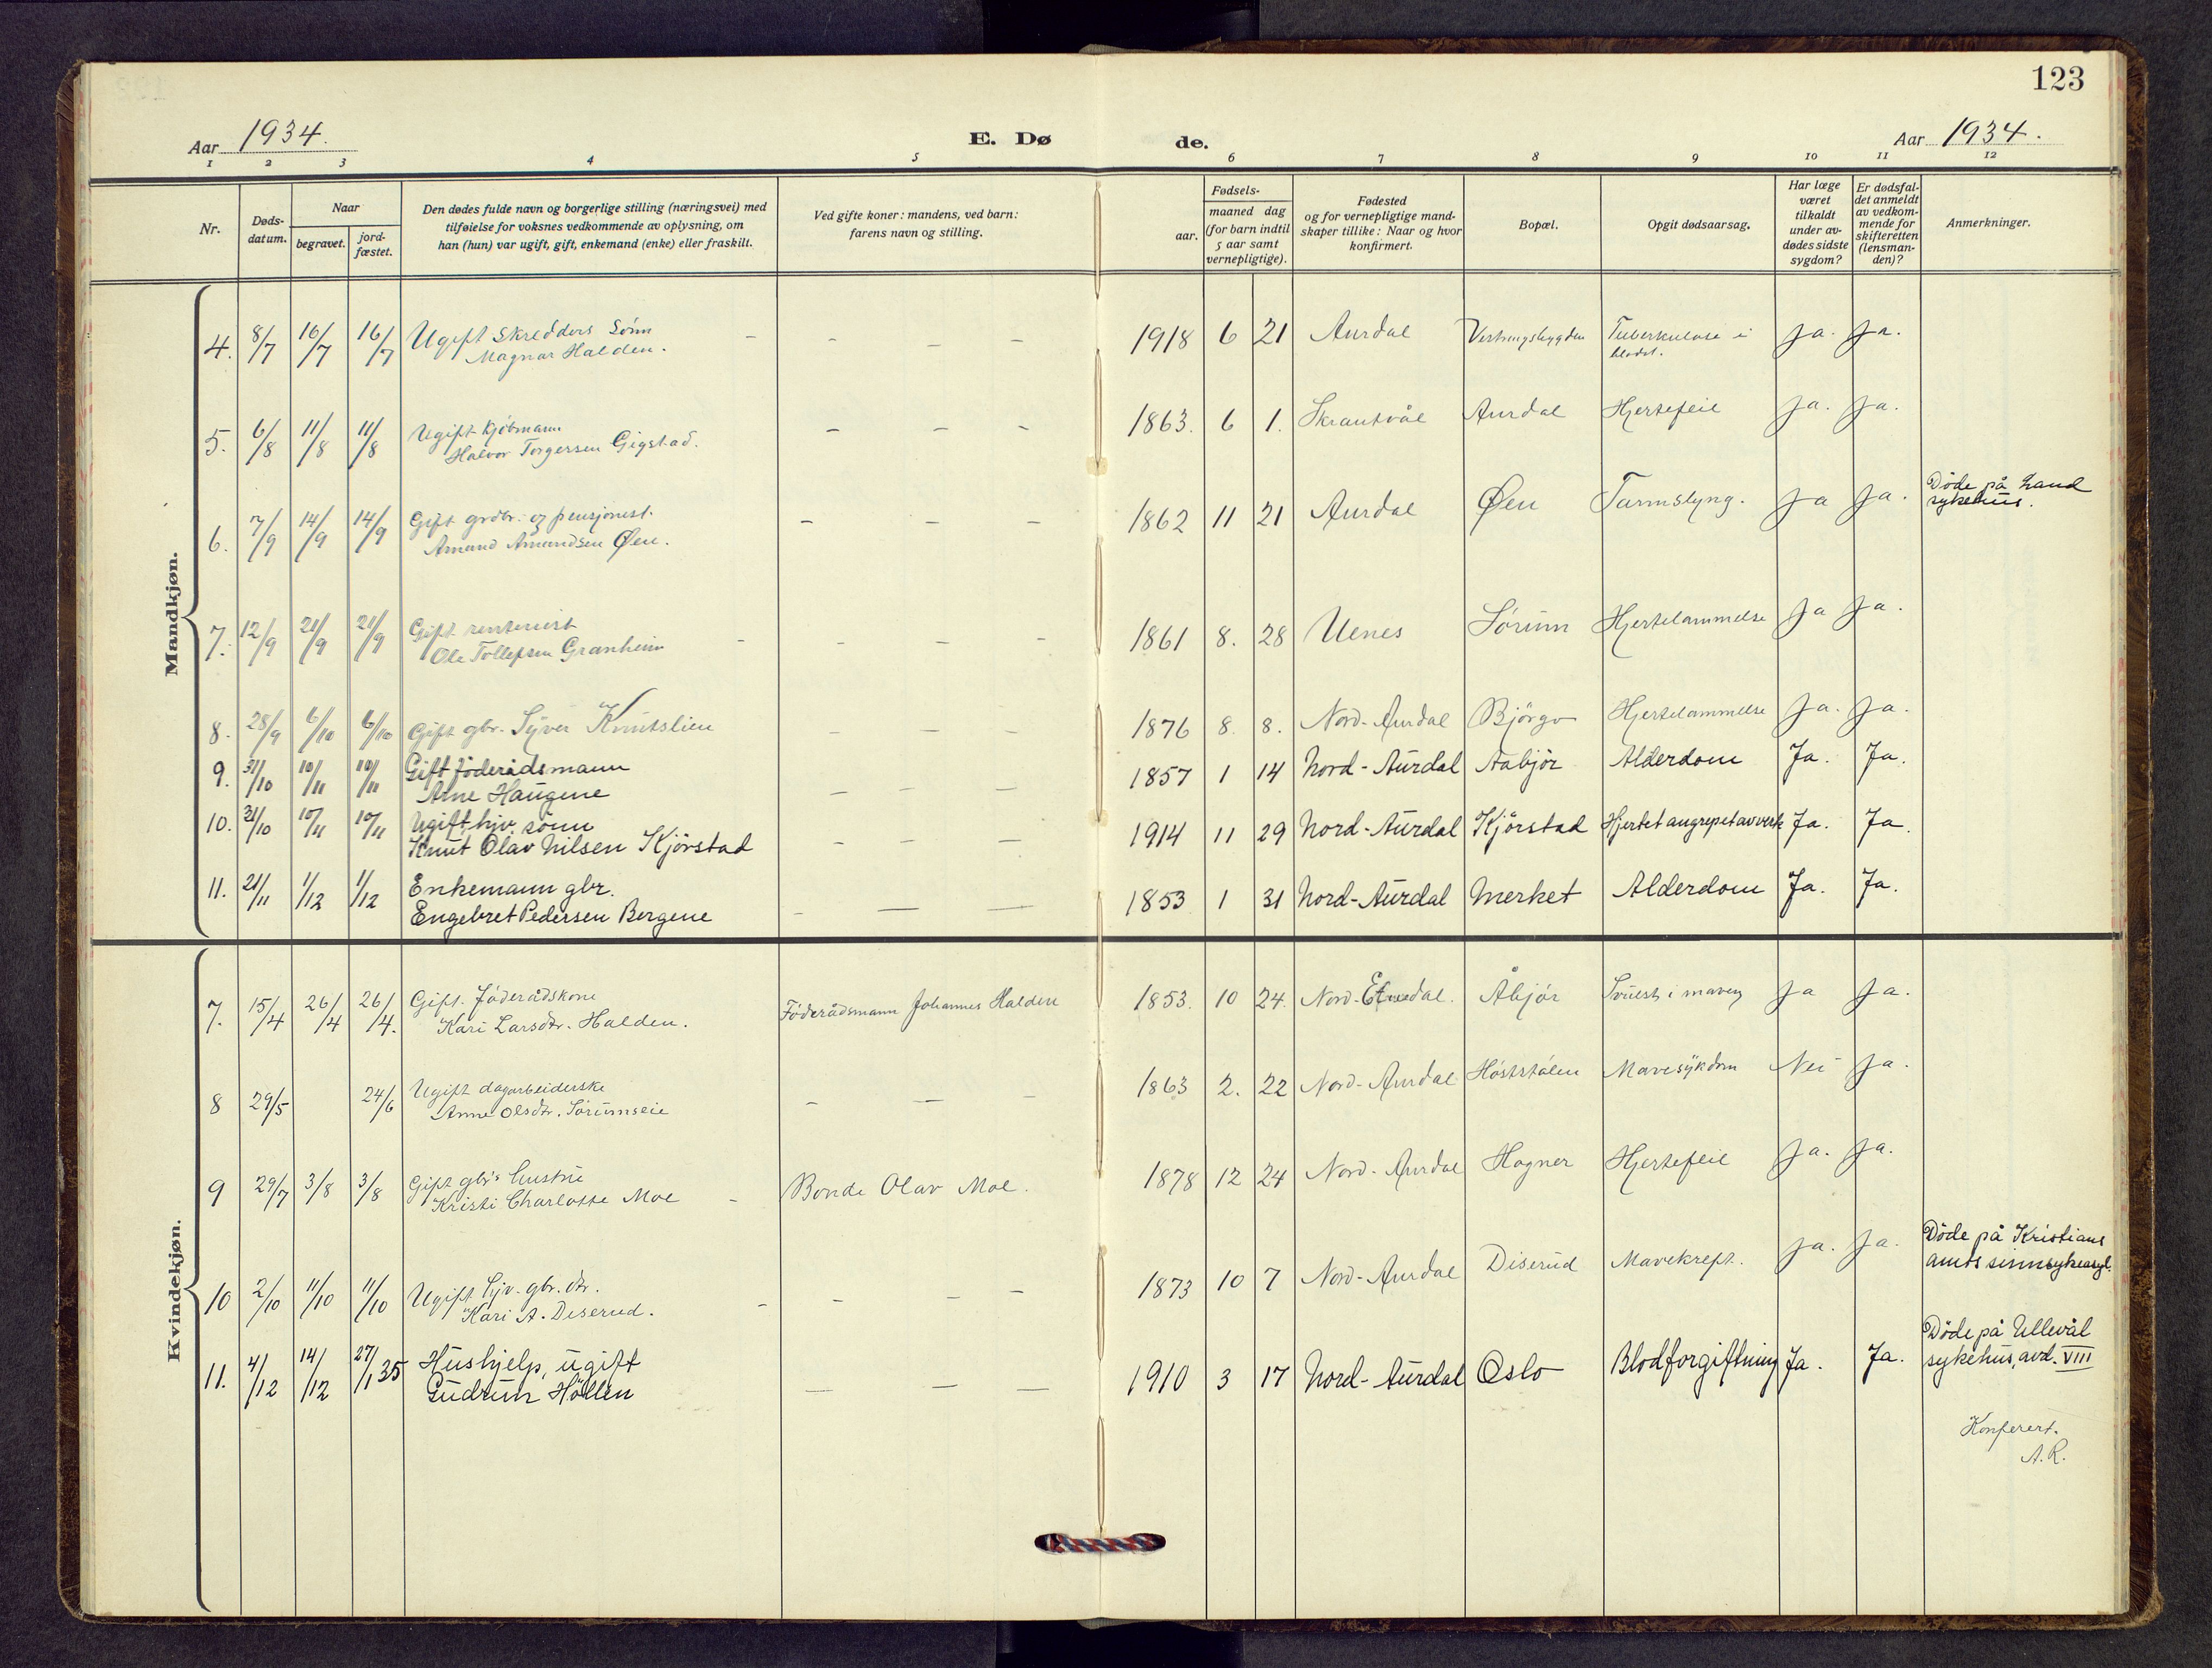 123
Aar 1934. E. Dø de. Aar 1934.
1 2 3 4 5 6 7 8 9 10 11 12
Nr.
Døds-
datum.
Naar
begravet.
jord-
fæstet.
Den dødes fulde navn og borgerlige stilling (næringsvei) med
tilføielse for voksnes vedkommende av oplysning, om
han (hun) var ugift, gift, enkemand (enke) eller fraskilt.
Ved gifte koner: mandens, ved barn:
farens navn og stilling.
Fødsels-
aar.
maaned dag
(for barn indtil
5 aar samt
vernepligtige).
Fødested
og for vernepligtige mand-
skaper tillike: Naar og hvor
konfirmert.
Bopæl.
Opgit dødsaarsag.
Har læge
været
tilkaldt
under av-
dødes sidste
sygdom?
Er dødsfal-
det anmeldt
av vedkom-
mende for
skifteretten
(lensman-
den)?
Anmerkninger.
Mandkjøn.
4. 8/7 16/7 16/7 Ugift Skredders Sönn - - - - 1918 6 21 Aurdal Tuberkulose i ja. ja.
Magnar Halden. blodet.
5. 6/8 11/8 11/8 Ugift kjöbmann - - - 1863. 6 1. Skrautvål Aurdal Hjertefeil ja. ja.
Halvor Torgersen Gigstad.
6. 7/9 14/9 14/9 Gift grdbr. og pensjonist. - - - 1862 11 21 Aurdal Øen Tarmslyng. ja ja. Döde på Land
Amund Amundsen Øen. sykehus.
7. 12/9 21/9 21/9 Gift rentenist - - - - 1861 8. 28 Ulnes Sörum Hjertelammelse ja ja.
Ole Tollefsen Granheim
8. 28/9 6/10 6/10 Gift gbr. Syver Knutslien - - - 1876 8. 8. Nord-Aurdal Björgo Hjertelammelse ja. ja.
9. 31/10 10/11 10/11 Gift föderådsmann - - - 1857 1 14 Nord-Aurdal Aabjör Alderdom Ja. Ja.
Arne Haugene
10. 31/10 10/11 10/11 Ugift, hjv. sönn - - - 1914 11 29 Nord-Aurdal Kjörstad Hjertet angrepet av verk Ja. Ja.
Knut Olav Nilsen Kjörstad
11. 21/11 1/12 1/12 Enkemann gbr. - - - 1853 1 31 Nord-Aurdal Merket Alderdom Ja. Ja.
Engebret Pedersen Bergene
Kvindekjøn.
7. 15/4 26/4 26/4. Gift. föderådskone Föderådsmann Johannes Halden 1853. 10 24. Nord-Etnedal. Åbjör Svulst i maven ja ja.
Kari Larsdtr. Halden.
8 29/5 24/6 Ugift dagarbeiderske - - - 1863 2. 22 Nord-Aurdal Höststölen Mavesykdom Nei ja.
Anne Olsdtr. Sörumseie
9 29/7 3/8 3/8 Gift gbr's hustru Bonde Olav Moe. 1878 12 24 Nord-Aurdal Hagner Hjertefeil ja. ja.
Kristi Charlotte Moe -
10 2/10 11/10 11/10 Ugift hjv. gbr. dtr. - - - - 1873 10 7 Nord-Aurdal Diserud Mavekreft. ja. ja. Döde på Kristians
Kari A. Diserud. amts sinnsykeasyl.
11. 4/12 14/12 27/1 35 Hushjelp, ugift - - - 1910 3 17 Nord-Aurdal Oslo Blodforgiftning Ja. Ja. Döde på Ullevål
Gudrun Höllen sykehus, avd. VIII
Konferert.
A.R.